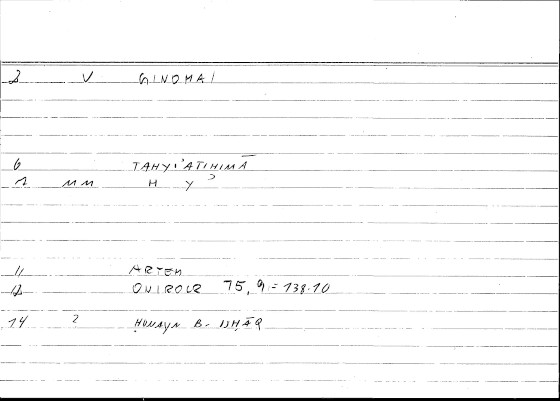 2 V GINOMAI
6 TAHYI'ATIHIMĀ
7 MM H Y ʾ
11 ARTEM
12 ONIROCR 75,9 = 138.10
14 2 ḤUNAYN B. ISḤĀQ